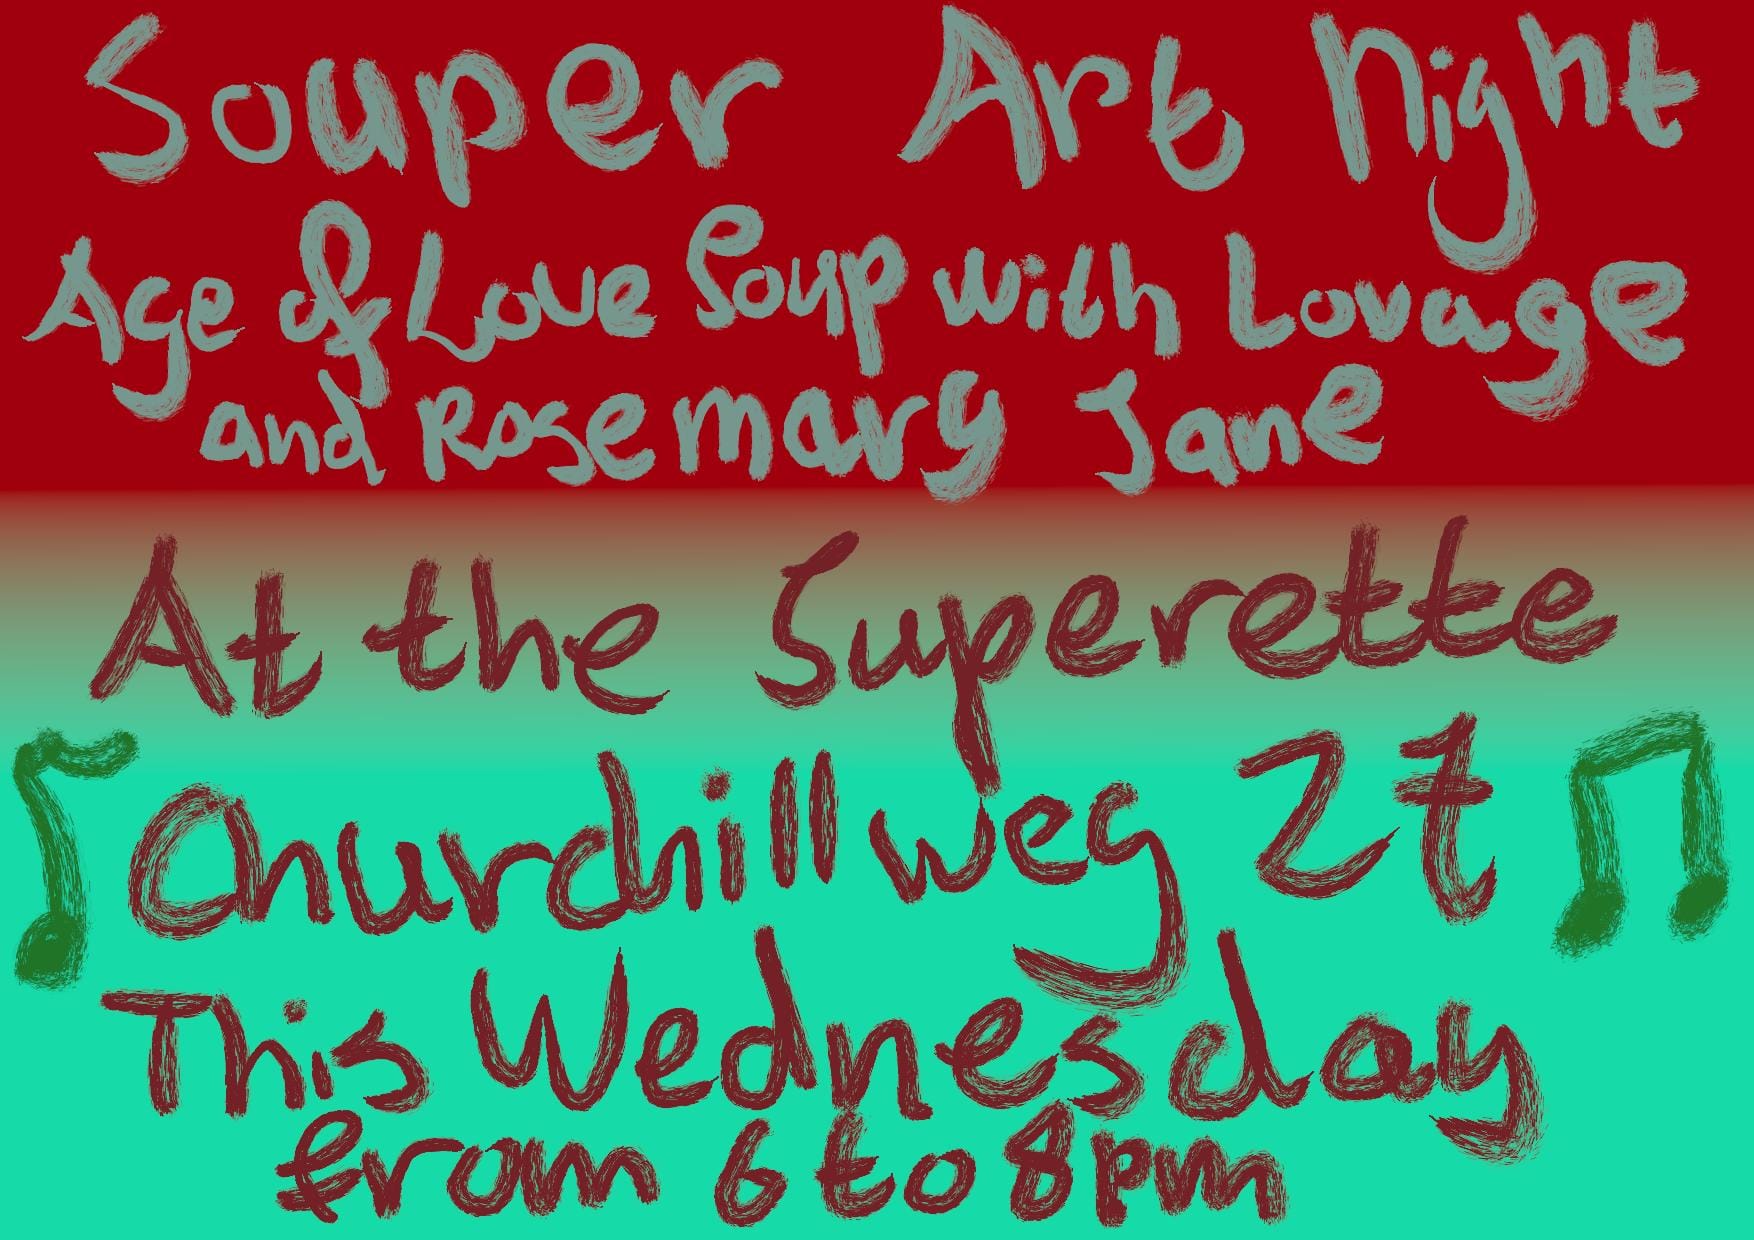 Souper Art Night
Age of Love Soup with Lovage
and Rosemary Jane
At the Superette
Churchillweg 27
This Wednesday
from 6 to 8pm